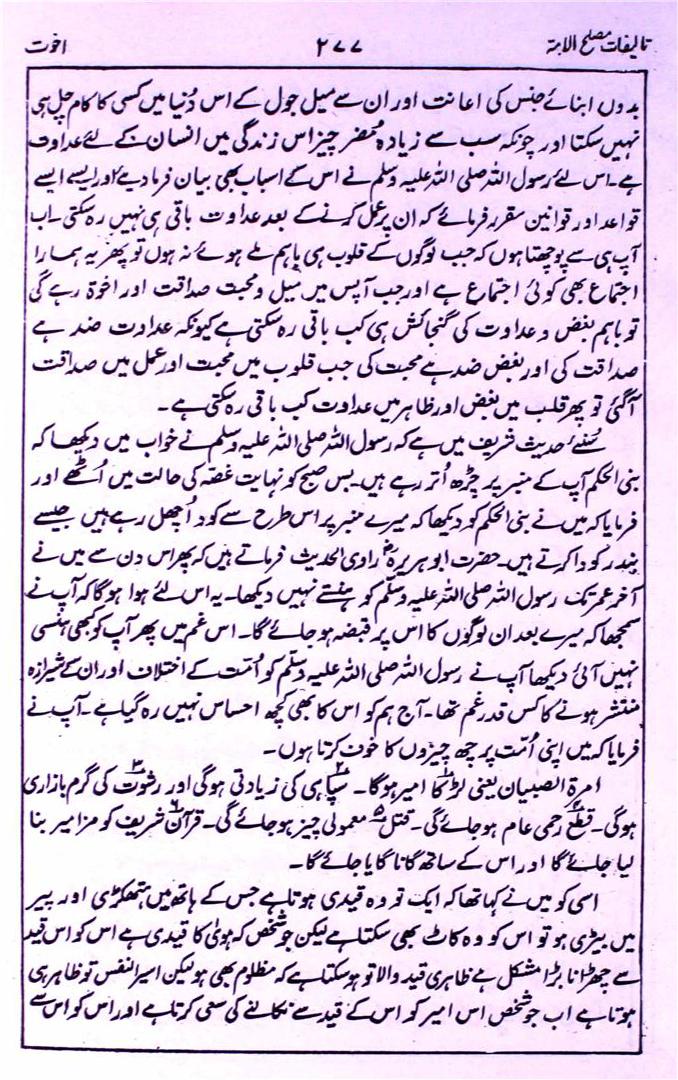 تالیفات مصلح الامۃ ۲۷۷ اخوت
بدوں ابنائے جنس کی اعانت اور ان سے میل جول کے اس دُنیا میں کسی کا کام چل ہی
نہیں سکتا اور چونکہ سب سے زیادہ مُضر چیز اس زندگی میں انسان کے لئے عداوت
ہے۔ اس لئے رسول اللہ صلی اللہ علیہ وسلم نے اس کے اسباب بھی بیان فرما دیے اور ایسے ایسے
قواعد اور قوانین مقرر فرمائے کہ ان پر عمل کرنے کے بعد عداوت باقی ہی نہیں رہ سکتی۔ اب
آپ ہی سے پوچھتا ہوں کہ جب لوگوں کے قلوب ہی باہم ملے ہوئے نہ ہوں تو پھر یہ ہمارا
اجتماع بھی کوئی اجتماع ہے اور جب آپس میں میل و محبت صداقت اور اخوۃ رہے گی
تو باہم بغض و عداوت کی گنجائش ہی کب باقی رہ سکتی ہے کیونکہ عداوت ضد ہے
صداقت کی اور بغض ضد ہے محبت کی جب قلوب میں محبت اور عمل میں صداقت
آگئی تو پھر قلب میں بغض اور ظاہر میں عداوت کب باقی رہ سکتی ہے۔
سُنئے حدیث شریف میں ہے کہ رسول اللہ صلی اللہ علیہ وسلم نے خواب میں دیکھا کہ
بنی الحکم آپ کے منبر پر چڑھ اُتر رہے ہیں۔ بس صبح کو نہایت غصّہ کی حالت میں اُٹھے اور
فرمایا کہ میں نے بنی الحکم کو دیکھا کہ میرے منبر پر اس طرح سے کود اُچھل رہے ہیں جیسے
بندر کودا کرتے ہیں۔ حضرت ابو ہریرہؓ راوی الحدیث فرماتے ہیں کہ پھر اس دن سے میں نے
آخر عمر تک رسول اللہ صلی اللہ علیہ وسلم کو ہنستے نہیں دیکھا۔ یہ اس لئے ہوا ہوگا کہ آپ نے
سمجھا کہ میرے بعد ان لوگوں کا اس پر قبضہ ہو جائے گا۔ اس غم میں پھر آپ کو کبھی ہنسی
نہیں آئی دیکھا آپ نے رسول اللہ صلی اللہ علیہ وسلم کو اُمت کے اختلاف اور ان کے شیرازہ
منتشر ہونے کا کس قدر غم تھا۔ آج ہم کو اس کا بھی کچھ احساس نہیں رہ گیا ہے۔ آپ نے
فرمایا کہ میں اپنی اُمّت پر چھ چیزوں کا خوف کرتا ہوں۔
امرۃ الصبیان یعنی لڑکا امیر ہوگا۔ سپاہی کی زیادتی ہوگی اور رشوت کی گرم بازاری
ہوگی۔ قطع رحمی عام ہو جائے گی۔ قتل معمولی چیز ہو جائے گی۔ قرآن شریف کو مزامیر بنا
لیا جائے گا اور اس کے ساتھ گانا گایا جائے گا۔
اسی کو میں نے کہا تھا کہ ایک تو وہ قیدی ہوتا ہے جس کے ہاتھ میں ہتھکڑی اور پیر
میں بیڑی ہو تو اس کو وہ کاٹ بھی سکتا ہے لیکن جو شخص کہ ہویٰ کا قیدی ہے اس کو اس قید
سے چھڑانا بڑا مشکل ہے ظاہری قید والا تو ہو سکتا ہے کہ مظلوم بھی ہو لیکن اسیر النفس تو ظاہر ہی
ہوتا ہے اب جو شخص اس امیر کو اس کے قید سے نکالنے کی سعی کرتا ہے اور اس کو اس سے